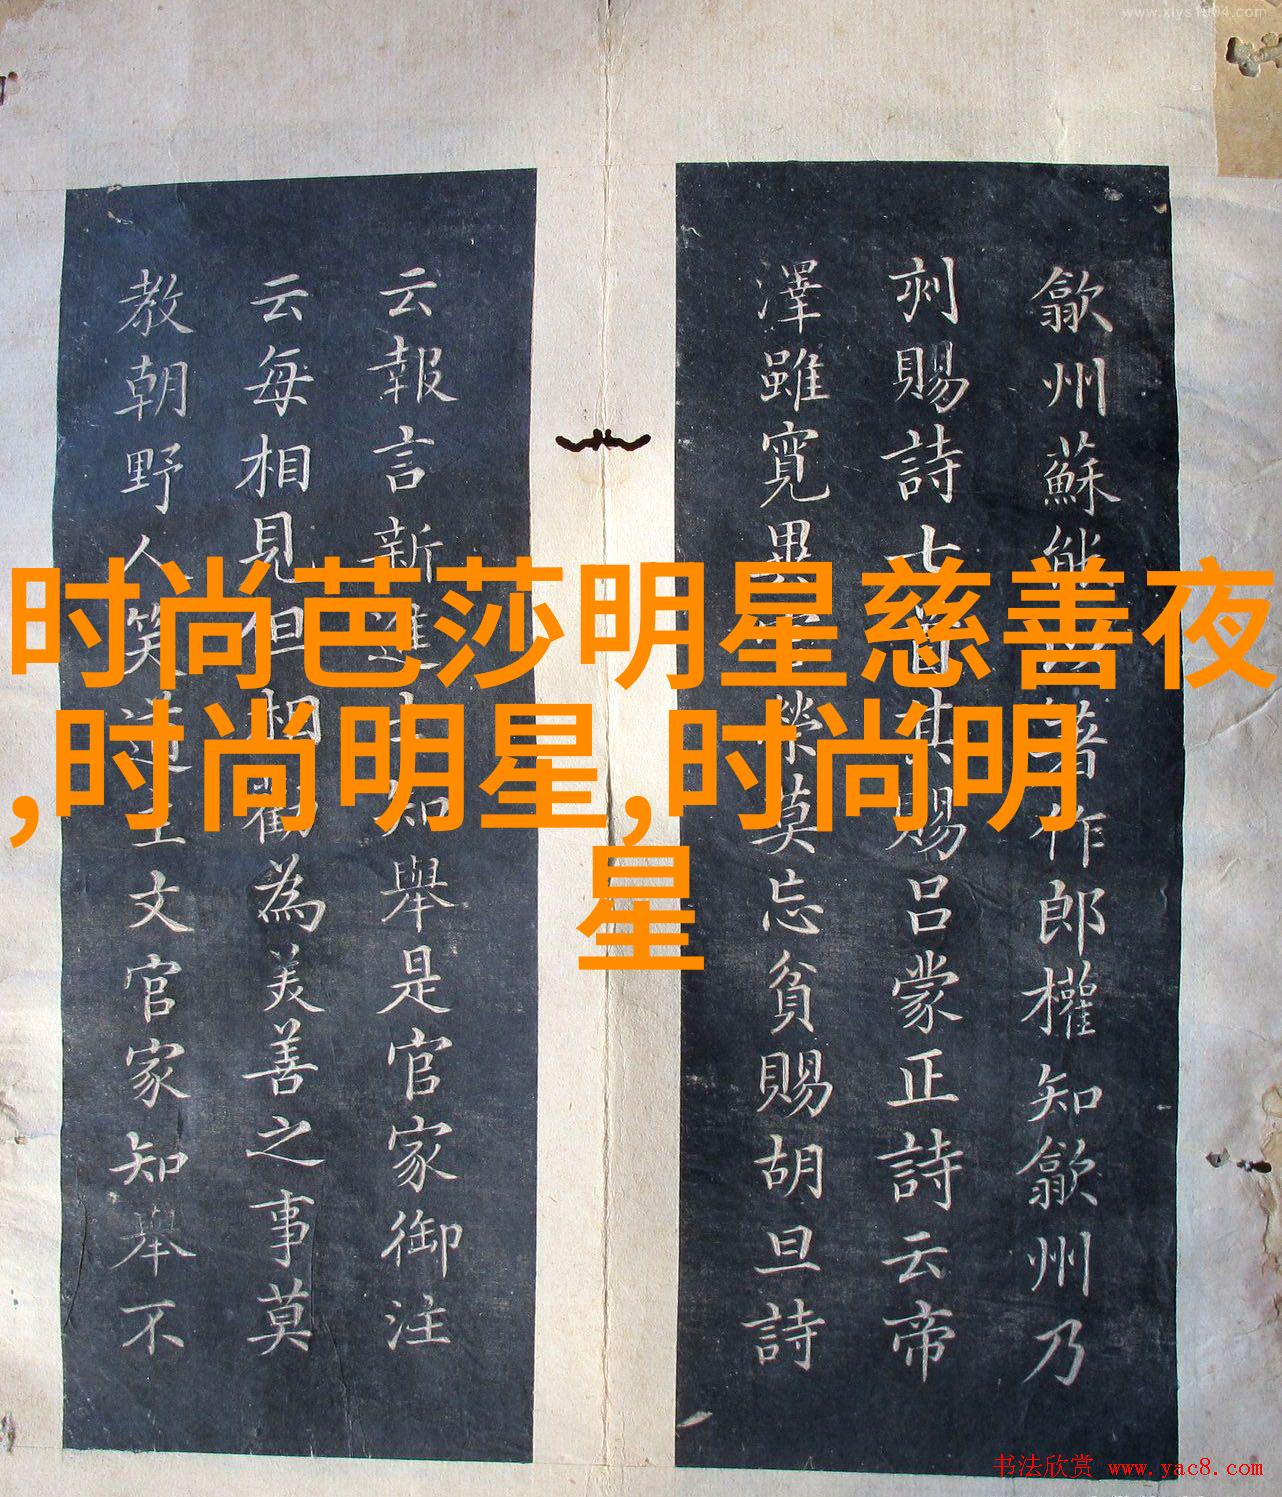 www.xlys1904.com
歙州蘇著作郎權知歙州乃
刻賜詩七首其賜呂蒙正詩云帝
澤雖寬異榮莫忘貧賜胡旦詩
云報言新進士知舉是官家御注
云每相見但相勸為美善之事莫
教朝野人笑道主文官家知舉不
时尚芭莎明星慈善夜
,时尚明星,时尚明
星
书法欣赏 www.yac8.com